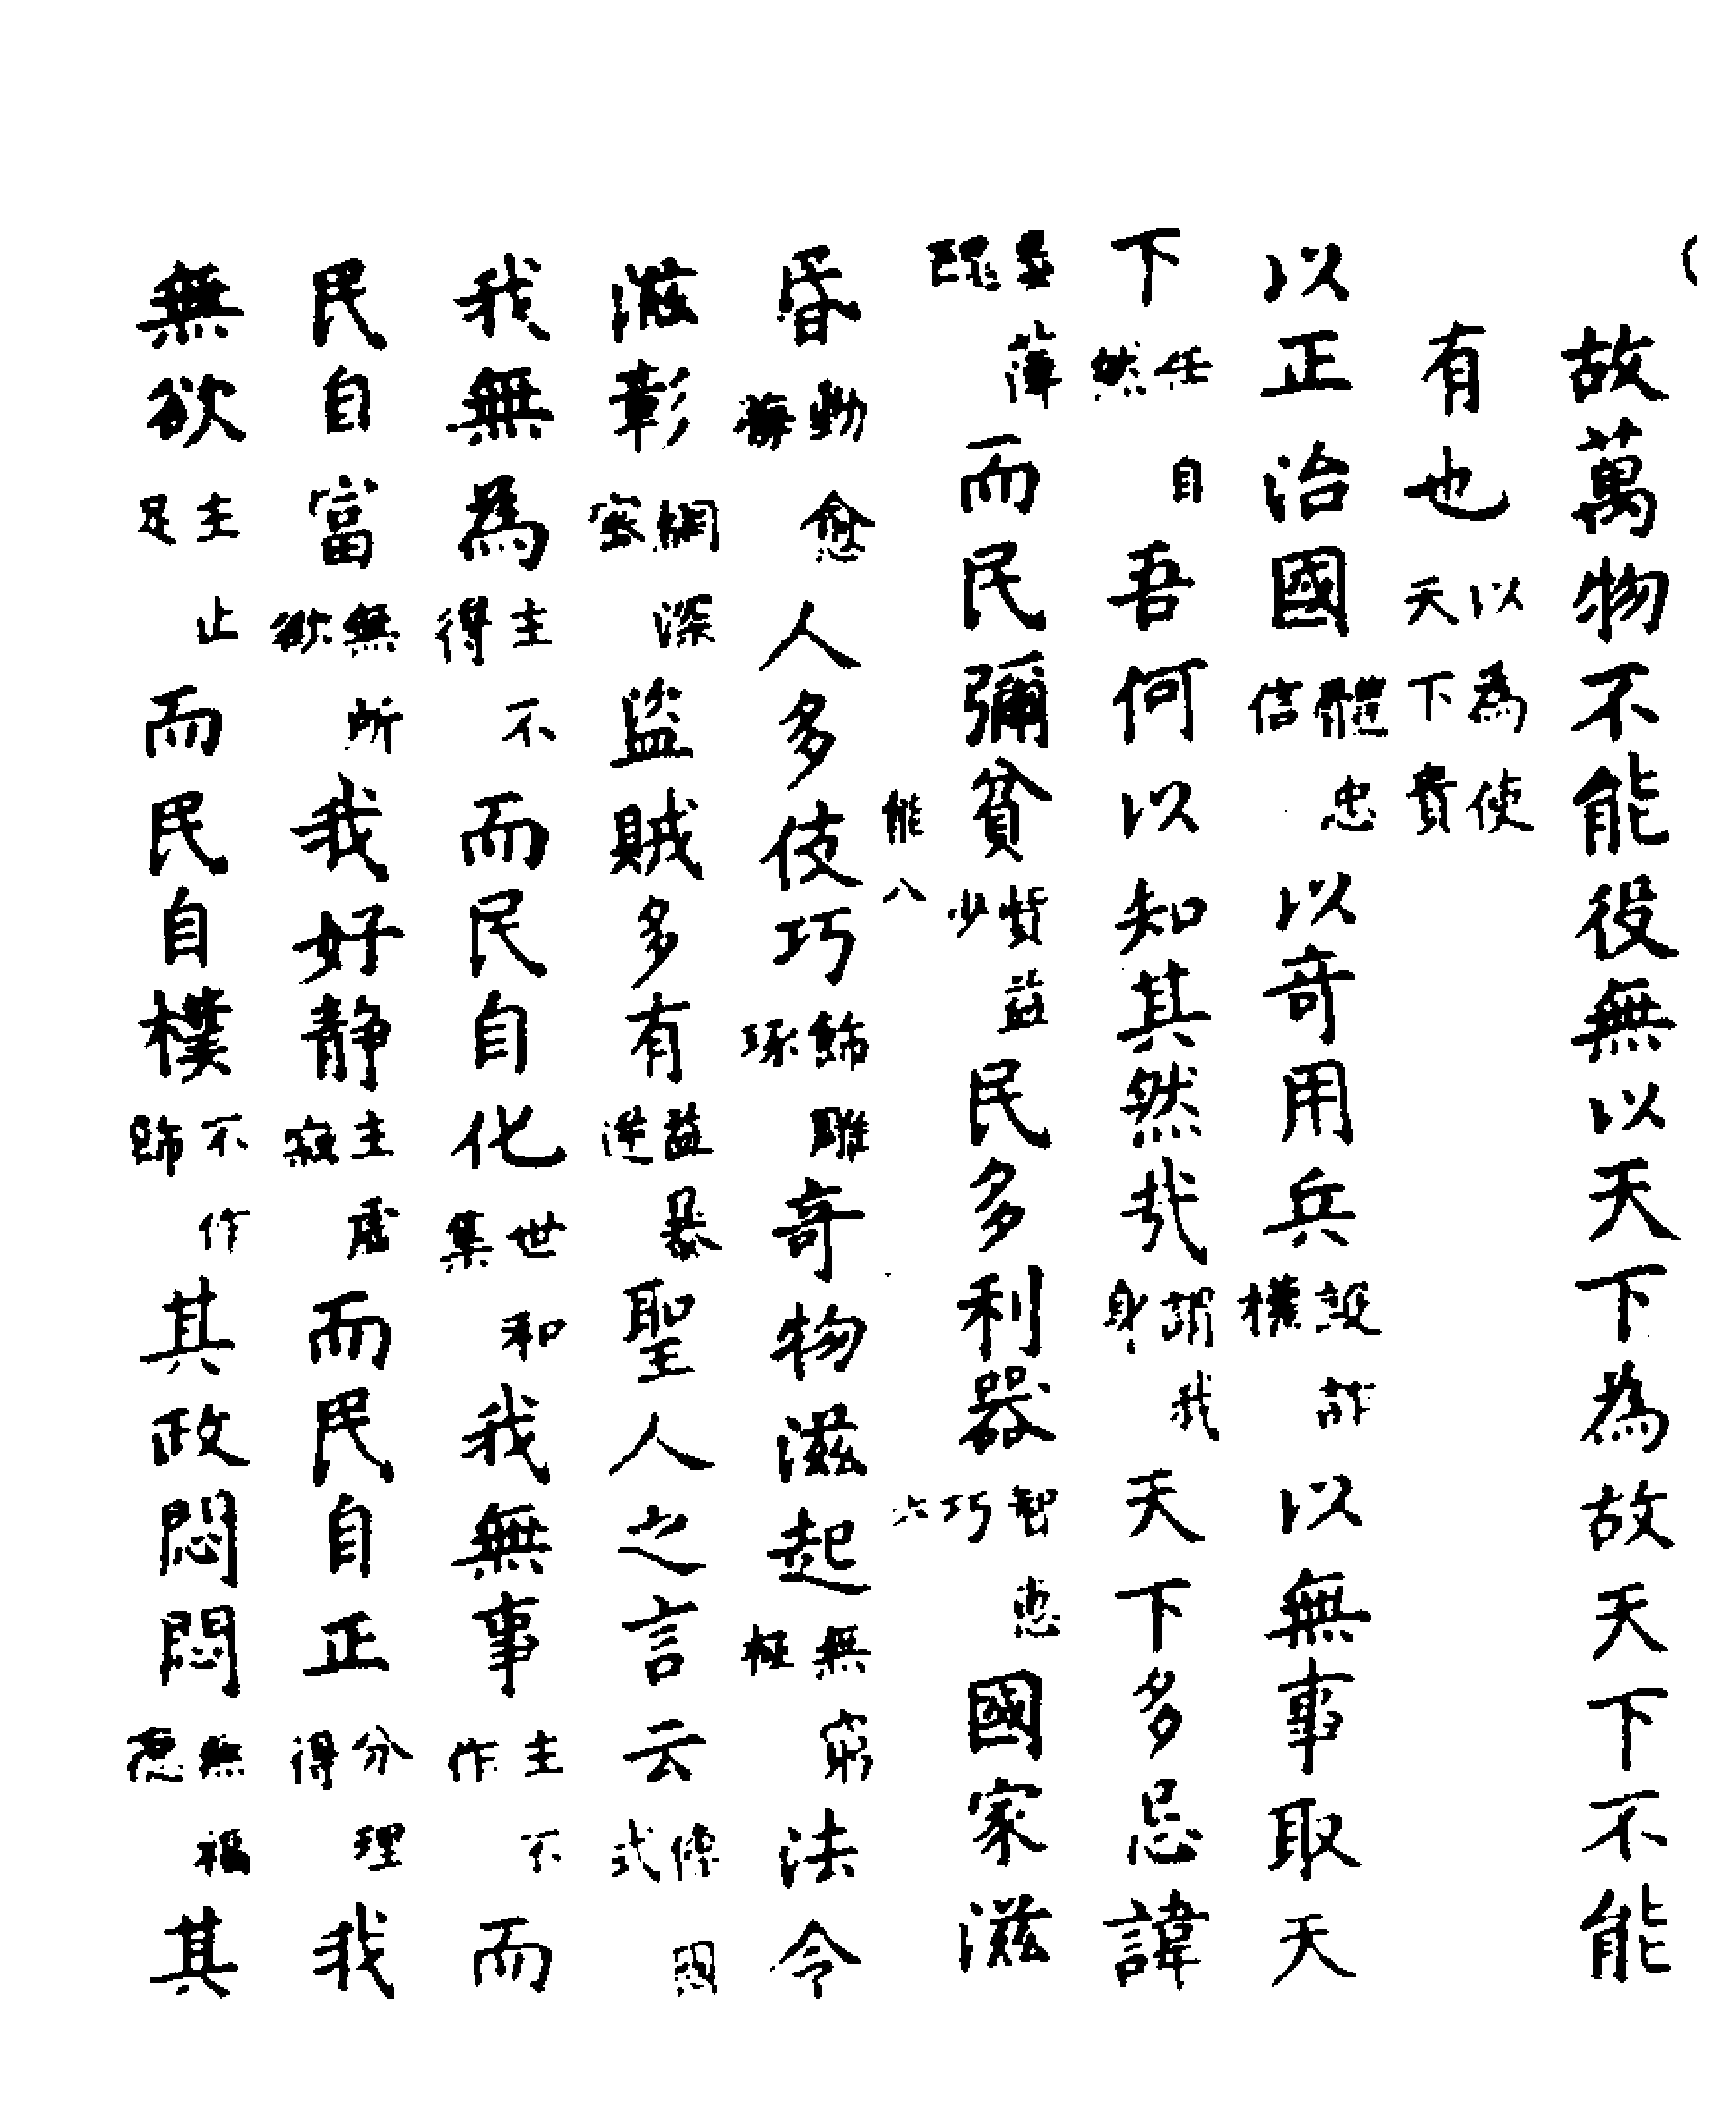 故萬物不能役無以天下為故天下不能
有也以為使天下貴
以正治國體忠信以奇用兵設詐以無事取天
下任自然吾何以知其然哉謂我身天下多忌諱
薄而民彌貧貨益少民多利器智惠巧國家滋
能八
昏動愈人多伎巧飾雕琢奇物滋起無窮極法令
滋彰網深密盜賊多有益暴逆聖人之言云傳國式
我無為主不得而民自化世和集我無事主不作而
民自富無所欲我好靜主虛寂而民自正分理得我
無欲主止足而民自樸不作飾其政悶悶無禍其